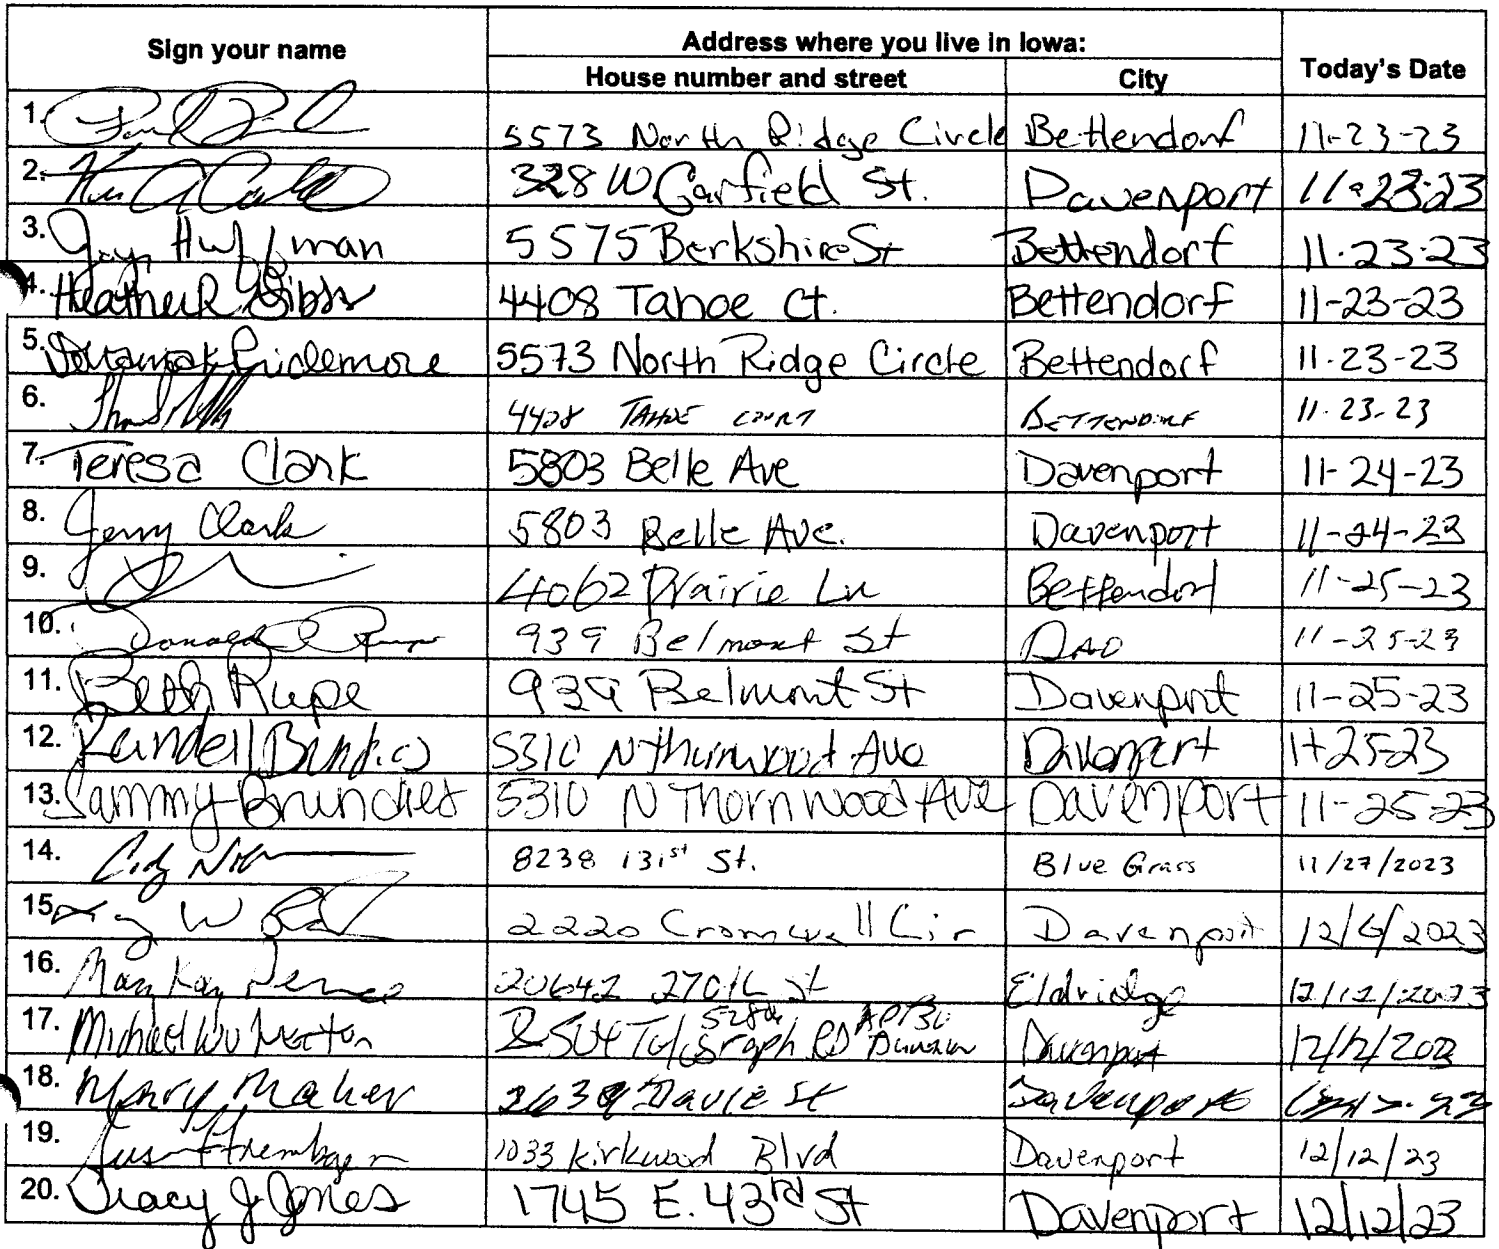 Sign your name
Address where you live in Iowa:
House number and street
City
Today's Date
1. 5573 North Ridge Circle Bettendorf 11-23-23
2. 328 W Garfield St. Davenport 11-23-23
3. Jay Huffman 5575 Berkshire St Bettendorf 11-23-23
4. Heather R Gibbs 4408 Tahoe Ct. Bettendorf 11-23-23
5. 5573 North Ridge Circle Bettendorf 11-23-23
6. 4408 TAHOE COURT BETTENDORF 11-23-23
7. Teresa Clark 5803 Belle Ave Davenport 11-24-23
8. Jerry Clark 5803 Belle Ave. Davenport 11-24-23
9. 4062 Prairie Ln Bettendorf 11-25-23
10. Donald 939 Belmont St DAV 11-25-23
11. Beth Rupe 939 Belmont St Davenport 11-25-23
12. 5310 N Thornwood Ave Davenport 11-25-23
13. Sammy 5310 N Thornwood Ave Davenport 11-25-23
14. 8238 131st St. Blue Grass 11/27/2023
15. W 2220 Cromwell Cir Davenport 12/6/2023
16. Mary Kay 20642 270th St Eldridge 12/12/2023
17. Michael Davenport
18. Mary Maher Davie St Davenport
19. Susan 1033 Kirkwood Blvd Davenport 12/12/23
20. Tracy J Jones 1745 E. 43rd St Davenport 12/12/23